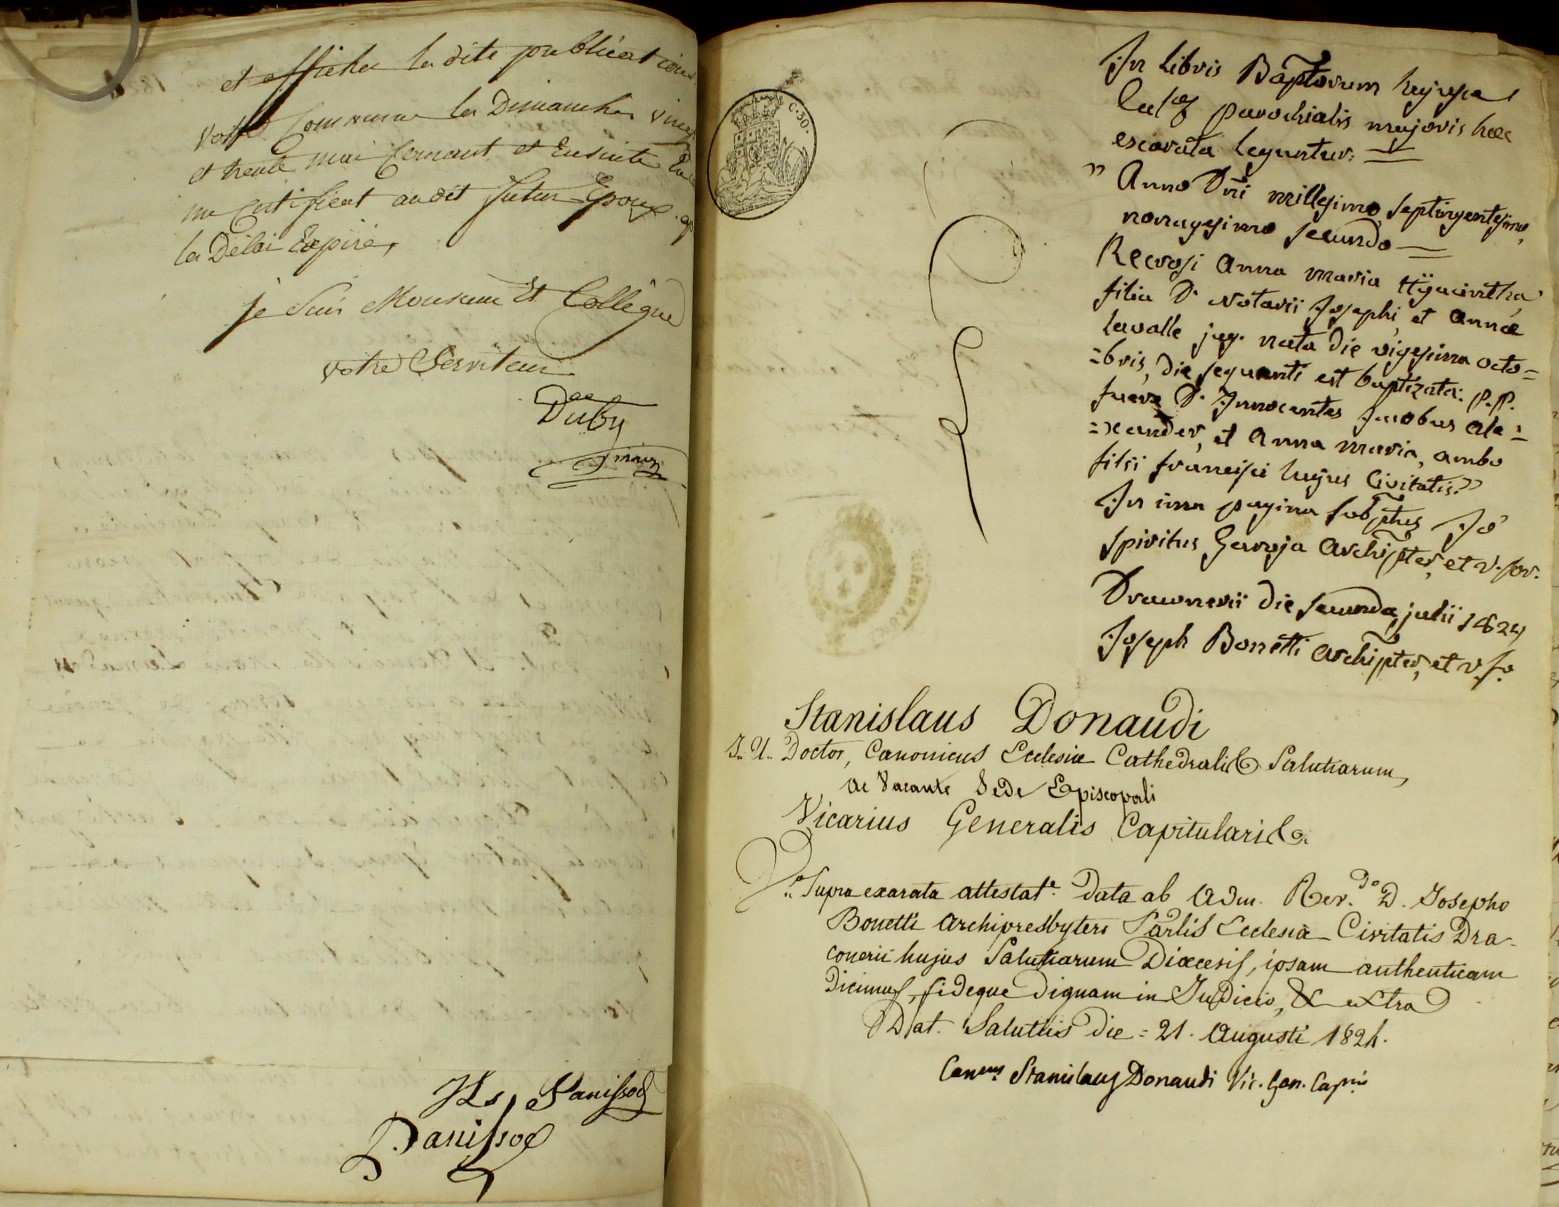 et afficher la dite publication
votre Commune les Dimanches vingt
et trente mai Courant et Ensuite En
me Certifient audit futur Epoux
le Délai Expiré,
je suis Monsieur Et Collègue
votre Serviteur
Duby
maire
Panissod
Panissod
C. 30.
In Libris Baptorum hujusce
parochialis majoris hæc
exarata leguntur:
" Anno Dñi millesimo septingentesimo,
nonagesimo secundo
Recursi Anna Maria Hÿacintha
filia D. Notarii Josephi, et Annæ
Lavalle jug. nata die vigesima octo=
=bris, die sequenti est baptizata: P.P.
fuere D. Innocentes Jacobus Ale=
=xander, et Anna Maria, ambo
filii francisci hujus Civitatis"
In ima pagina subptus Jo
Spiritus Gervaja Archipter, et v. for.
Draconerii die secunda julii 1824
Joseph Bonetti Archipter, et v. fo.
Stanislaus Donaudi
J. U. Doctor, Canonicus Ecclesiæ Cathedralis Salutiarum,
ac Vacante Sede Episcopali
Vicarius Generalis Capitularis.
Supra exarata attestat.e data ab Adm. Rev.do D. Josepho
Bonetti Archipresbytero Parlis Ecclesiæ Civitatis Dra-
conerii hujus Salutiarum Diœcesis, ipsam authenticam
dicimus, fideque dignam in Judicio, & extra
Dat. Salutiis die = 21. Augusti 1824.
Can.cus Stanislaus Donaudi Vic. Gen. Cap.ris